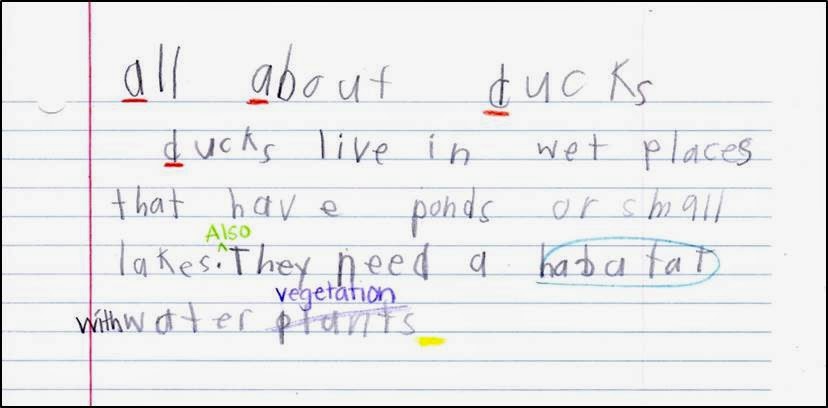 all about ducks
ducks live in wet places
that have ponds or small
Also
lakes. They need a habatat
vegetation
with water plants